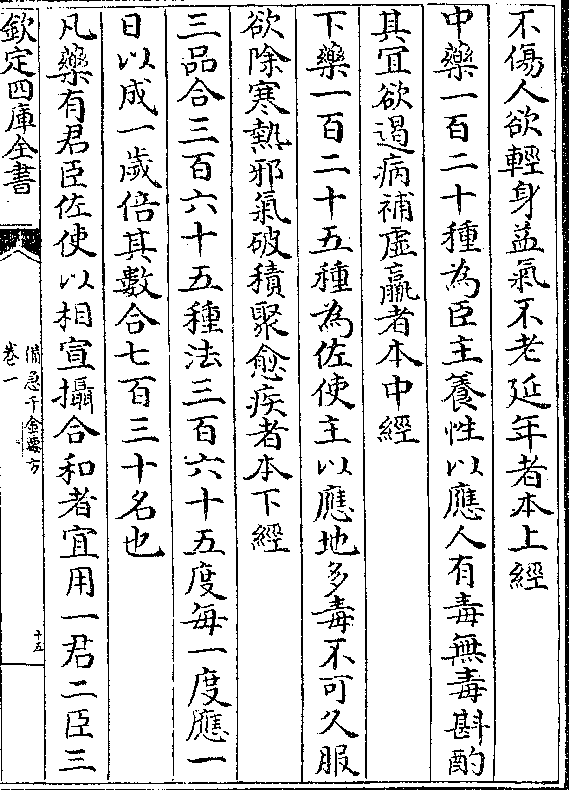 不傷人欲輕身益氣不老延年者本上經
中藥一百二十種為臣主養性以應人有毒無毒斟酌
其宜欲遏病補虛羸者本中經
下藥一百二十五種為佐使主以應地多毒不可久服
欲除寒熱邪氣破積聚愈疾者本下經
三品合三百六十五種法三百六十五度每一度應一
日以成一歲倍其數合七百三十名也
凡藥有君臣佐使以相宣攝合和者宜用一君二臣三
欽定四庫全書
備急千金要方
卷一
十五